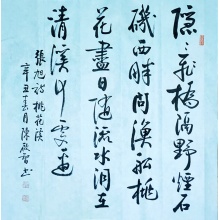 隱〻飛橋隔野煙石
磯西畔問漁船桃
花盡日隨流水洞在
清溪何處邊
張旭詩桃花溪
辛丑十月陳智書